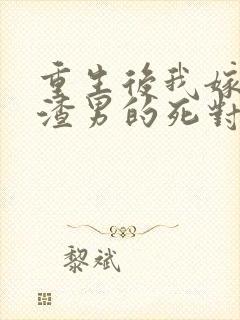 重生後我嫁
渣男的死對
黎斌